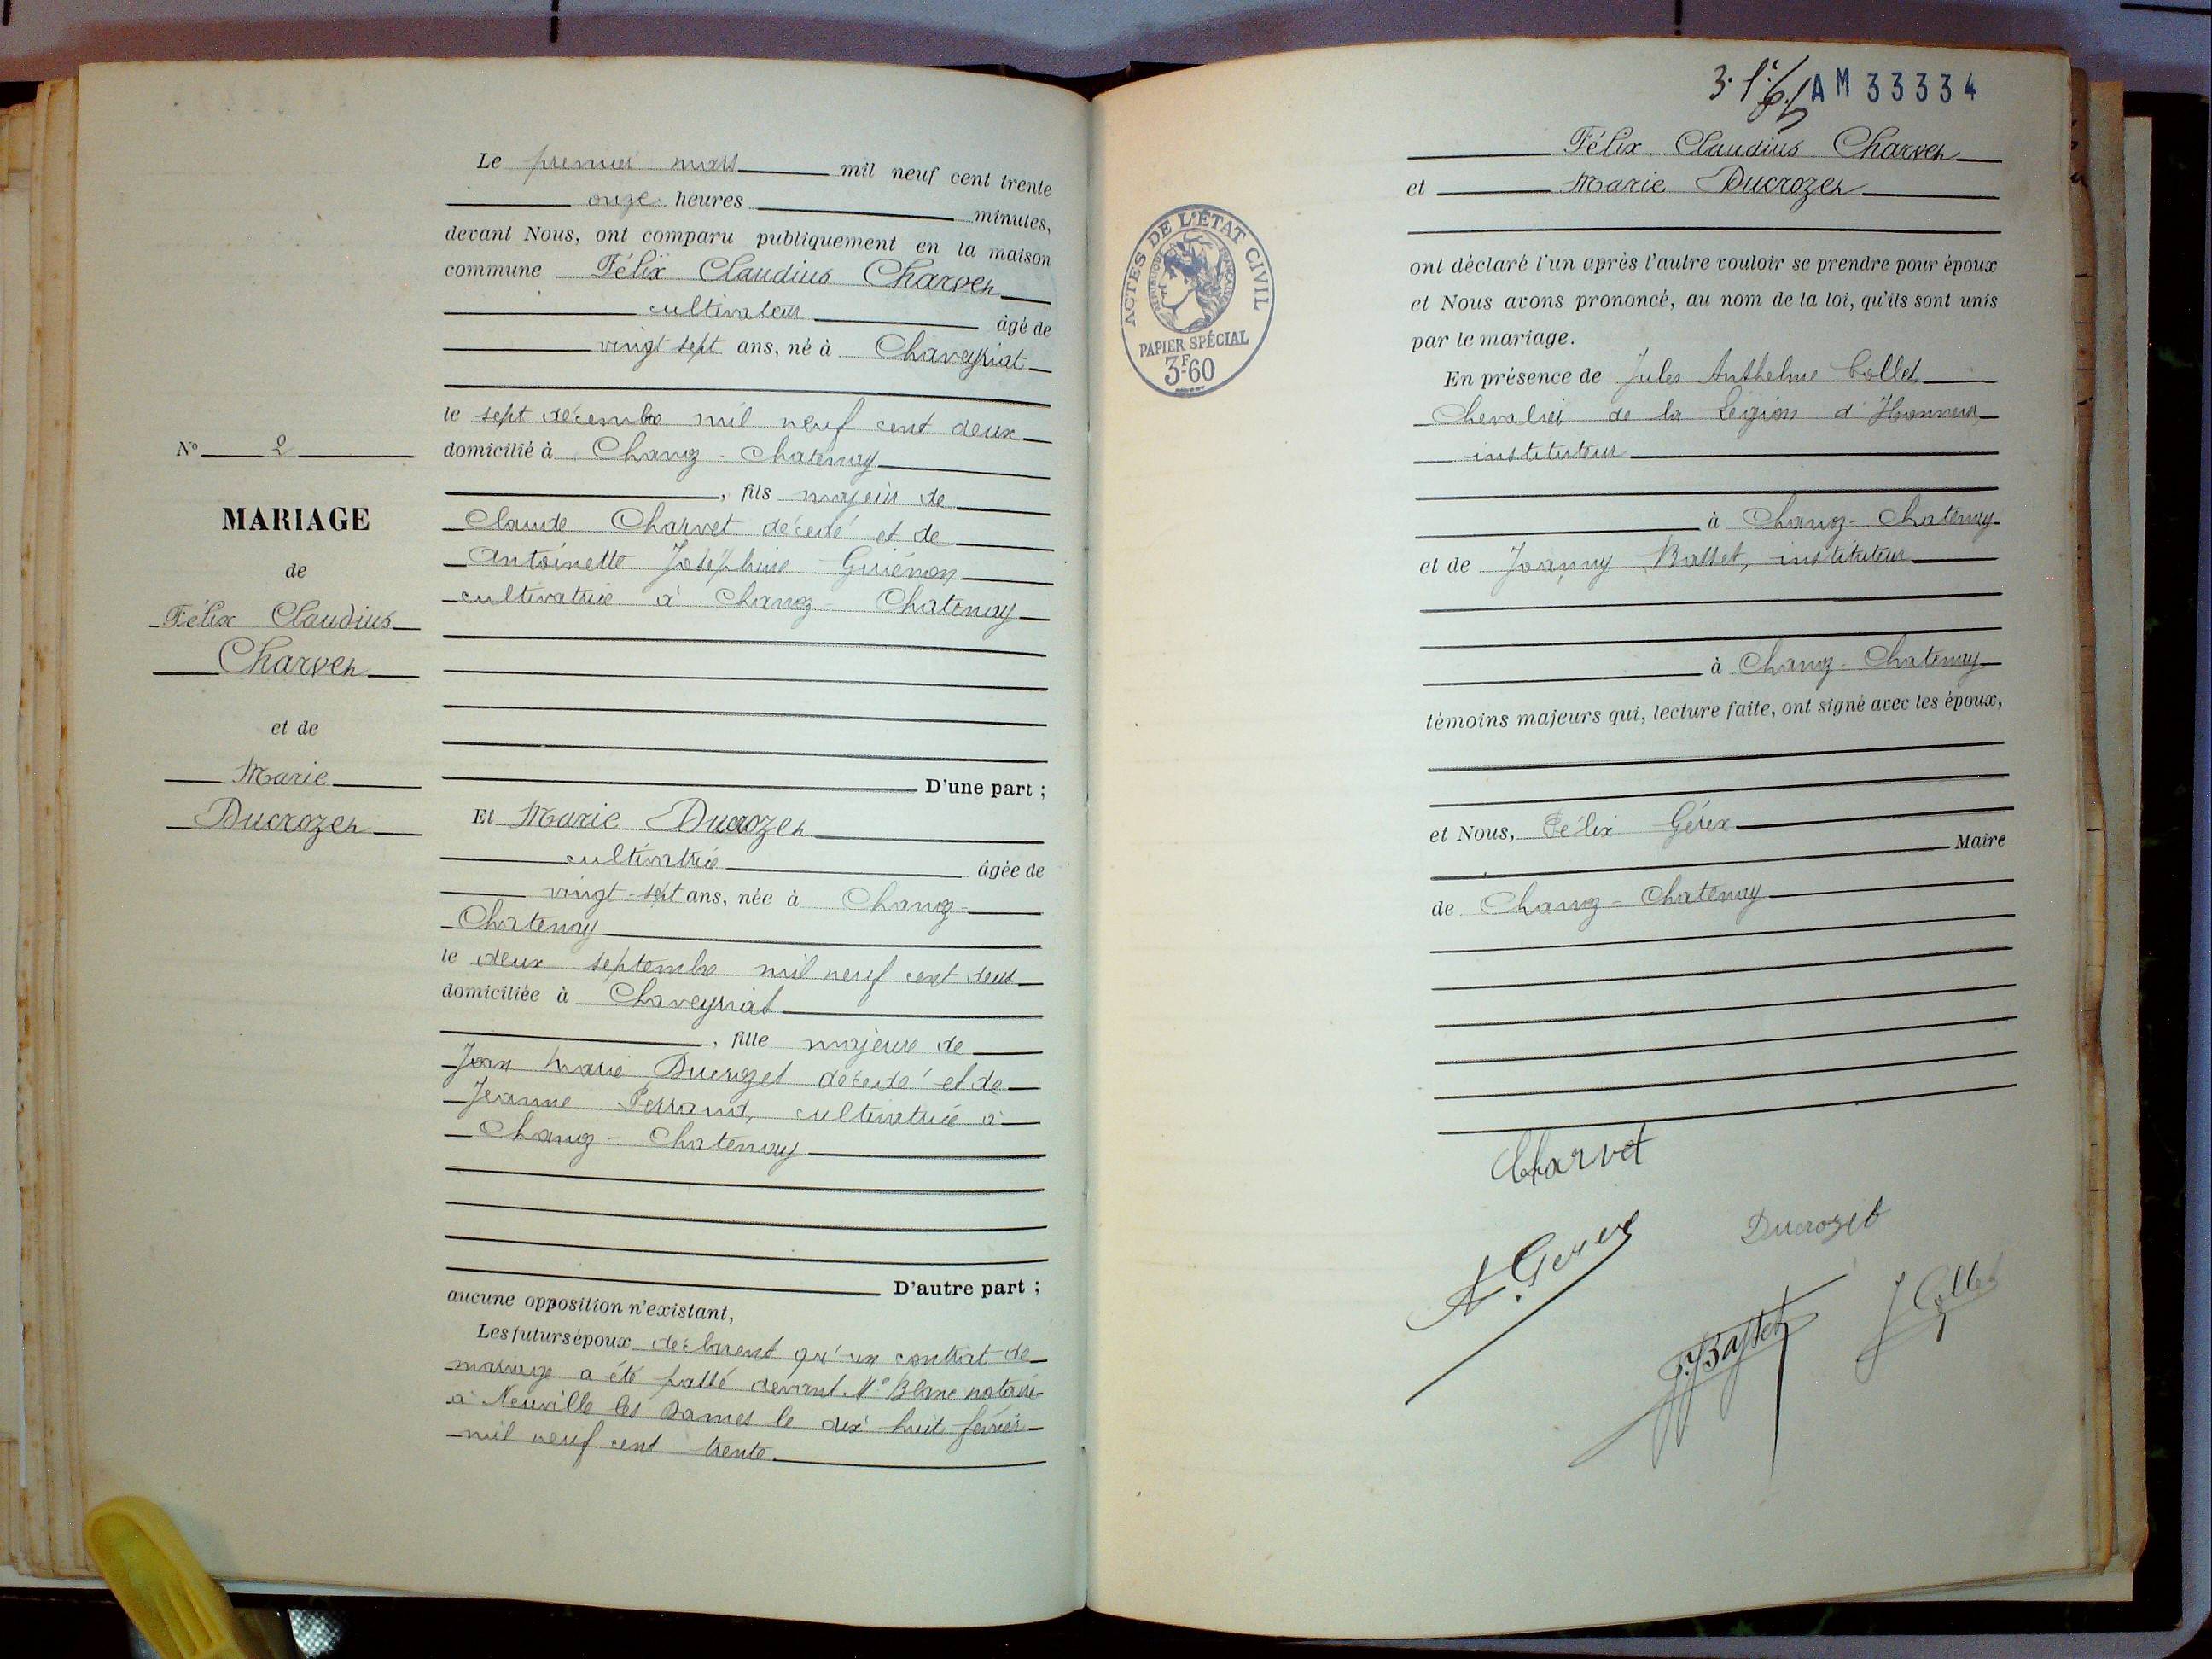 N° 2
MARIAGE
de
Félix Claudius
Charvet
et de
Marie
Ducrozet
Le premier mars mil neuf cent trente
onze heures minutes,
devant Nous, ont comparu publiquement en la maison
commune Félix Claudius Charvet
cultivateur âgé de
vingt sept ans, né à Chaveyriat
le sept décembre mil neuf cent deux
domicilié à Chanoz-Chatenay
, fils majeur de
Claude Charvet décédé et de
Antoinette Joséphine Guiénon
cultivatrice à Chanoz-Chatenay
D'une part ;
Et Marie Ducrozet
cultivatrice âgée de
vingt-sept ans, née à Chanoz-
Chatenay
le deux septembre mil neuf cent deux
domiciliée à Chaveyriat
, fille majeure de
Jean Marie Ducrozet décédé et de
Jeanne Perraud, cultivatrice à
Chanoz-Chatenay
D'autre part ;
aucune opposition n'existant,
Les futurs époux déclarent qu'un contrat de
mariage a été passé devant Me Blanc notaire
à Neuville les Dames le dix huit février
mil neuf cent trente.
AM 33334
Félix Claudius Charvet
et Marie Ducrozet
ACTES DE L'ÉTAT CIVIL
RÉPUBLIQUE FRANÇAISE
PAPIER SPÉCIAL
3F60
ont déclaré l'un après l'autre vouloir se prendre pour époux
et Nous avons prononcé, au nom de la loi, qu'ils sont unis
par le mariage.
En présence de Jules Anthelme Collet
Chevalier de la Légion d'Honneur,
instituteur
à Chanoz-Chatenay
et de Joanny Basset, instituteur
à Chanoz-Chatenay
témoins majeurs qui, lecture faite, ont signé avec les époux,
et Nous, Félix Gérex
Maire
de Chanoz-Chatenay
Charvet
Ducrozet
J Collet
J. Basset